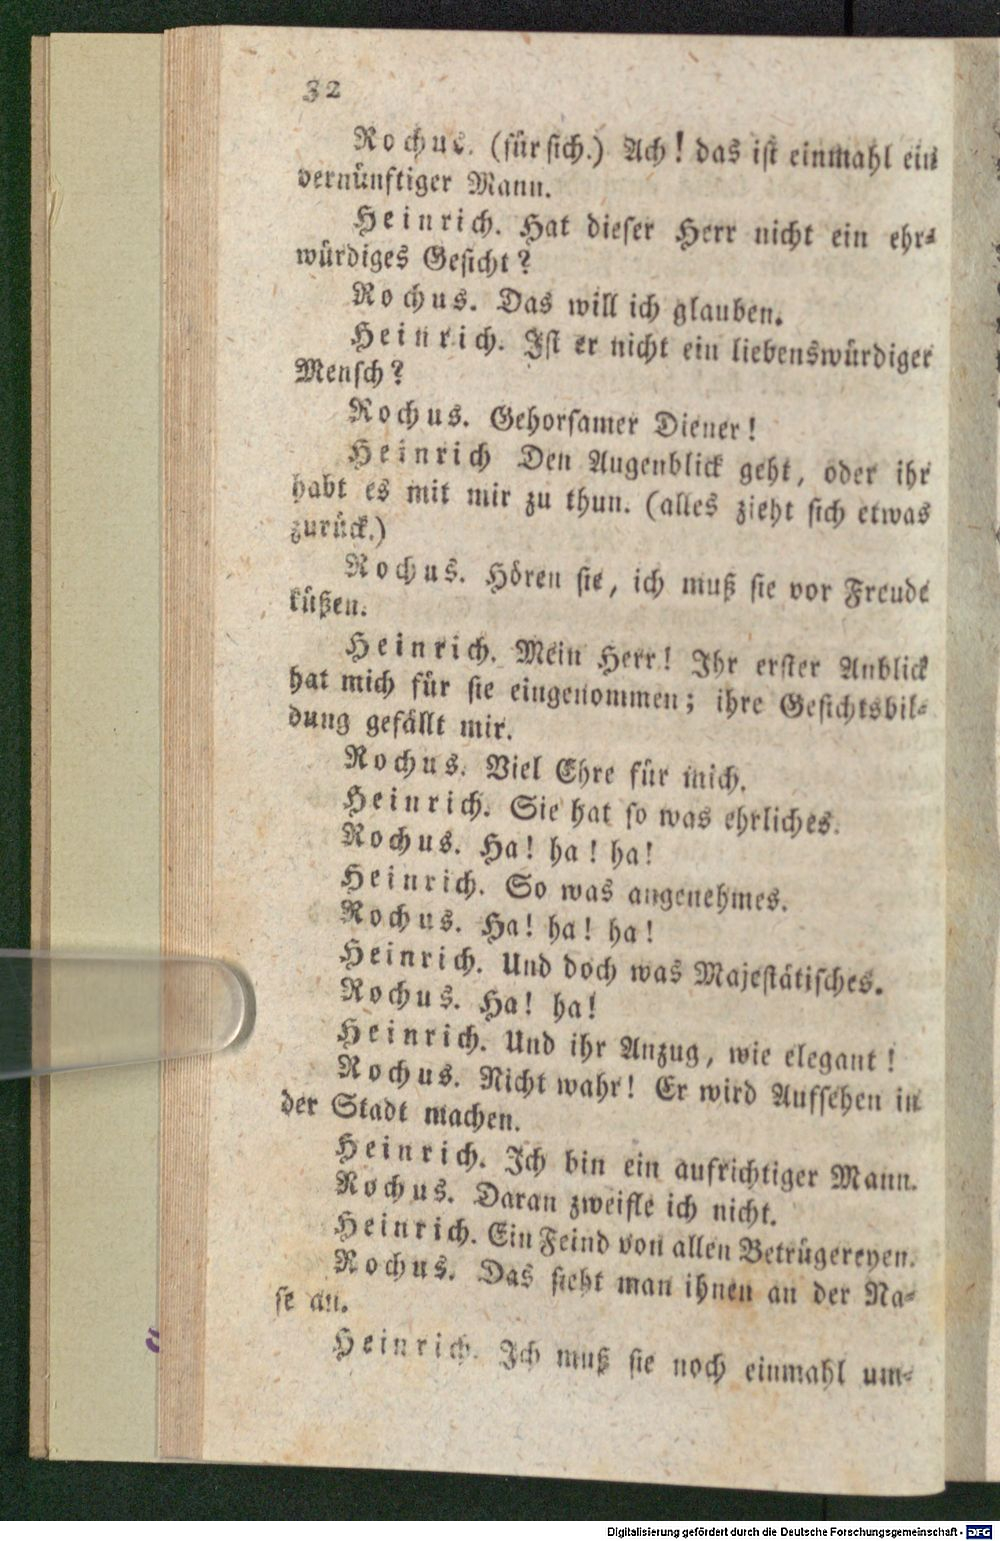 32
Rochus. (für sich.) Ach! das ist einmahl ein
vernünftiger Mann.
Heinrich. Hat dieser Herr nicht ein ehr-
würdiges Gesicht?
Rochus. Das will ich glauben.
Heinrich. Ist er nicht ein liebenswürdiger
Mensch?
Rochus. Gehorsamer Diener!
Heinrich Den Augenblick geht, oder ihr
habt es mit mir zu thun. (alles zieht sich etwas
zurück.)
Rochus. Hören sie, ich muß sie vor Freude
küßen.
Heinrich. Mein Herr! Ihr erster Anblick
hat mich für sie eingenommen; ihre Gesichtsbil-
dung gefällt mir.
Rochus. Viel Ehre für mich.
Heinrich. Sie hat so was ehrliches.
Rochus. Ha! ha! ha!
Heinrich. So was angenehmes.
Rochus. Ha! ha! ha!
Heinrich. Und doch was Majestätisches.
Rochus. Ha! ha!
Heinrich. Und ihr Anzug, wie elegant!
Rochus. Nicht wahr! Er wird Aufsehen in
der Stadt machen.
Heinrich. Ich bin ein aufrichtiger Mann.
Rochus. Daran zweifle ich nicht.
Heinrich. Ein Feind von allen Betrügereyen.
Rochus. Das sieht man ihnen an der Na-
se an.
Heinrich. Ich muß sie noch einmahl um-
Digitalisierung gefördert durch die Deutsche Forschungsgemeinschaft - DFG